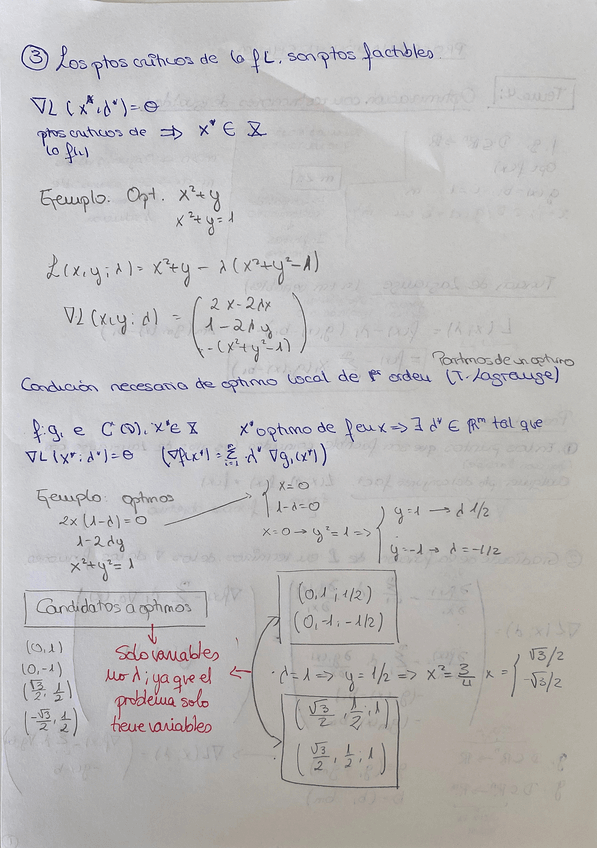 ③ Los ptos críticos de la f L, son ptos factibles.
∇L (x*; λ*) = θ
ptos críticos de ⇒ x* ∈ X
la f(.)
Ejemplo: Opt. x²+y
x²+y=1
L(x,y;λ) = x²+y - λ(x²+y²-1)
∇L(x,y;λ) = (2x-2λx
1-2λy
-(x²+y²-1))
Partimos de un optimo
Condición necesaria de optimo local de 1er orden (T. Lagrange)
f; gi ∈ C¹(D), x* ∈ X x* optimo de f en x ⇒ ∃ λ* ∈ ℝᵐ tal que
∇L (x*; λ*) = θ (∇f(x*) = Σ λ* ∇gi(x*))
Ejemplo: optmos
2x(1-λ)=0 → { x=0
1-λ=0
1-2λy
x²+y²=1
x=0 → y²=1 ⇒ { y=1 → λ 1/2
y=-1 → λ=-1/2
Candidatos a optimos
(0,1; 1/2)
(0,-1, -1/2)
(0,1)
(0,-1)
(√3/2, 1/2)
(-√3/2, 1/2)
Solo variables
no λ; ya que el
problema solo
tiene variables
· λ=1 ⇒ y=1/2 ⇒ x²=3/4 x = { √3/2
-√3/2
(√3/2, 1/2; 1)
(√3/2, 1/2; 1)